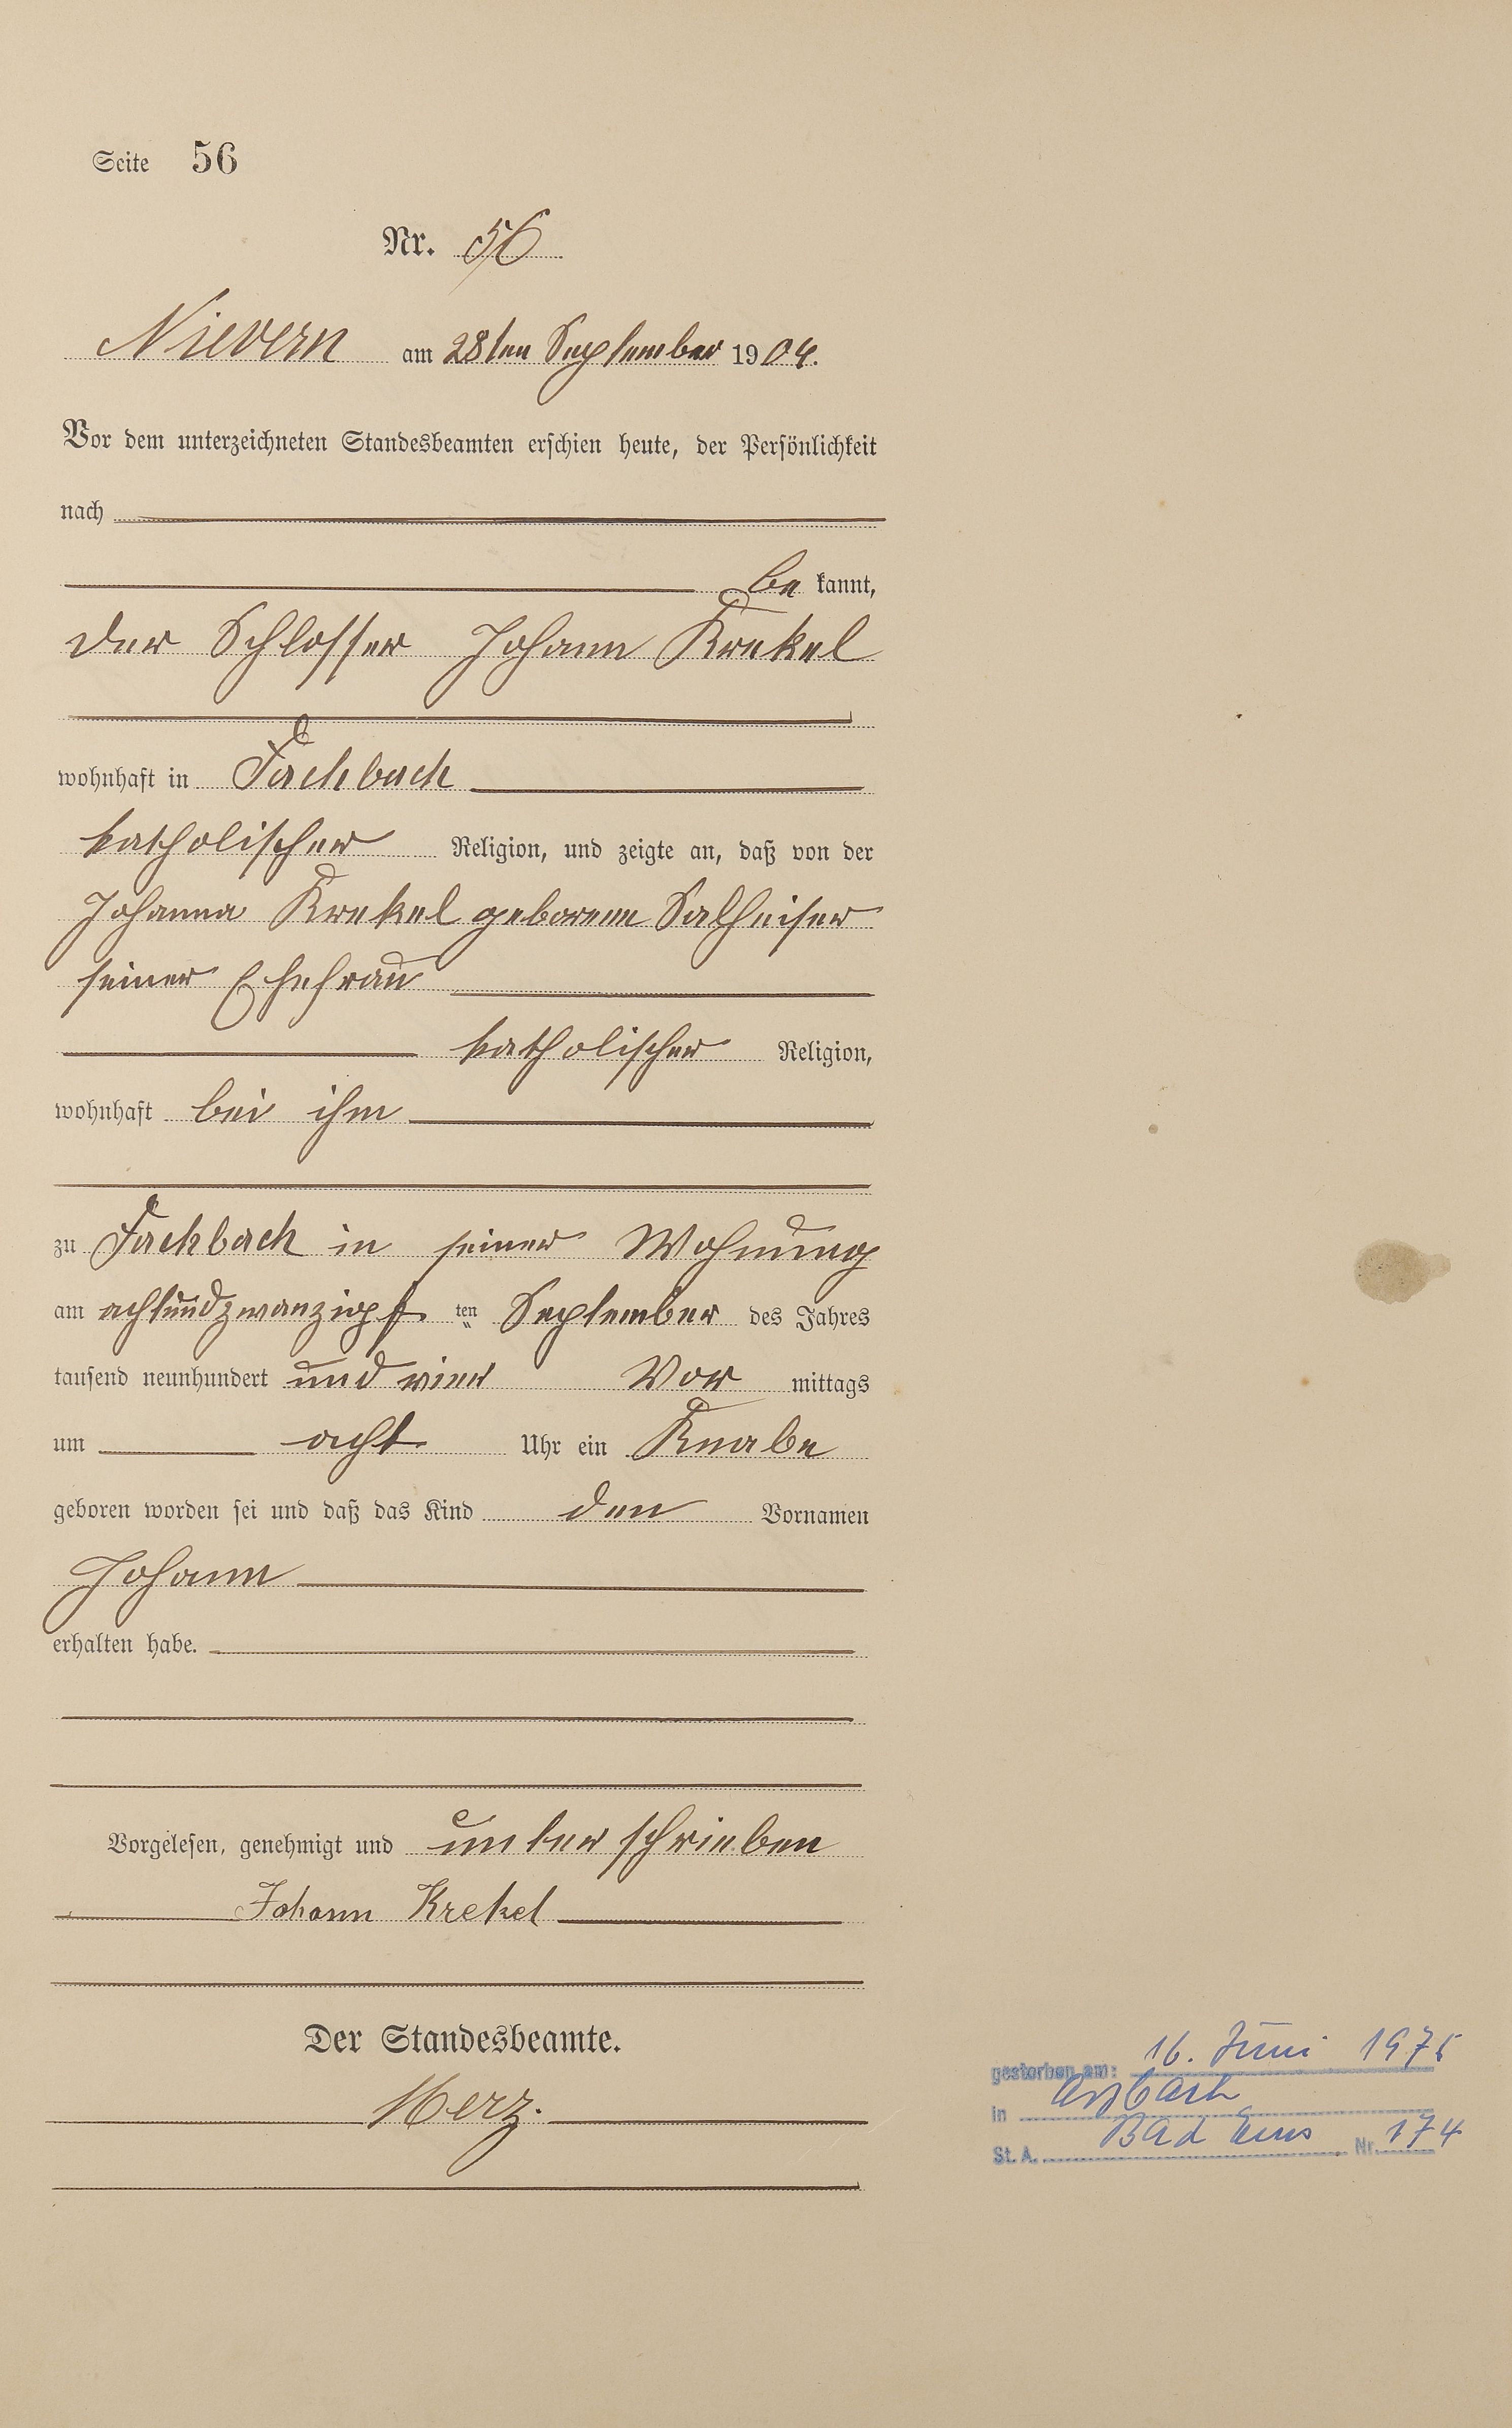 Seite 56
Nr. 56
Nievern am 28ten September 1904.
Vor dem unterzeichneten Standesbeamten erschien heute, der Persönlichkeit
nach
be kannt,
der Schlosser Johann Krekel
wohnhaft in Fachbach
katholischer Religion, und zeigte an, daß von der
Johanna Krekel geborene Salheiser
seiner Ehefrau
katholischer Religion,
wohnhaft bei ihm
zu Fachbach in seiner Wohnung
am achtundzwanzigst ten September des Jahres
tausend neunhundert und vier Vor mittags
um acht Uhr ein Knabe
geboren worden sei und daß das Kind den Vornamen
Johann
erhalten habe.
Vorgelesen, genehmigt und unterschrieben
Johann Krekel
Der Standesbeamte.
Merz.
gestorben am: 16. Juni 1975
in
St. A. Bad Ems Nr. 174